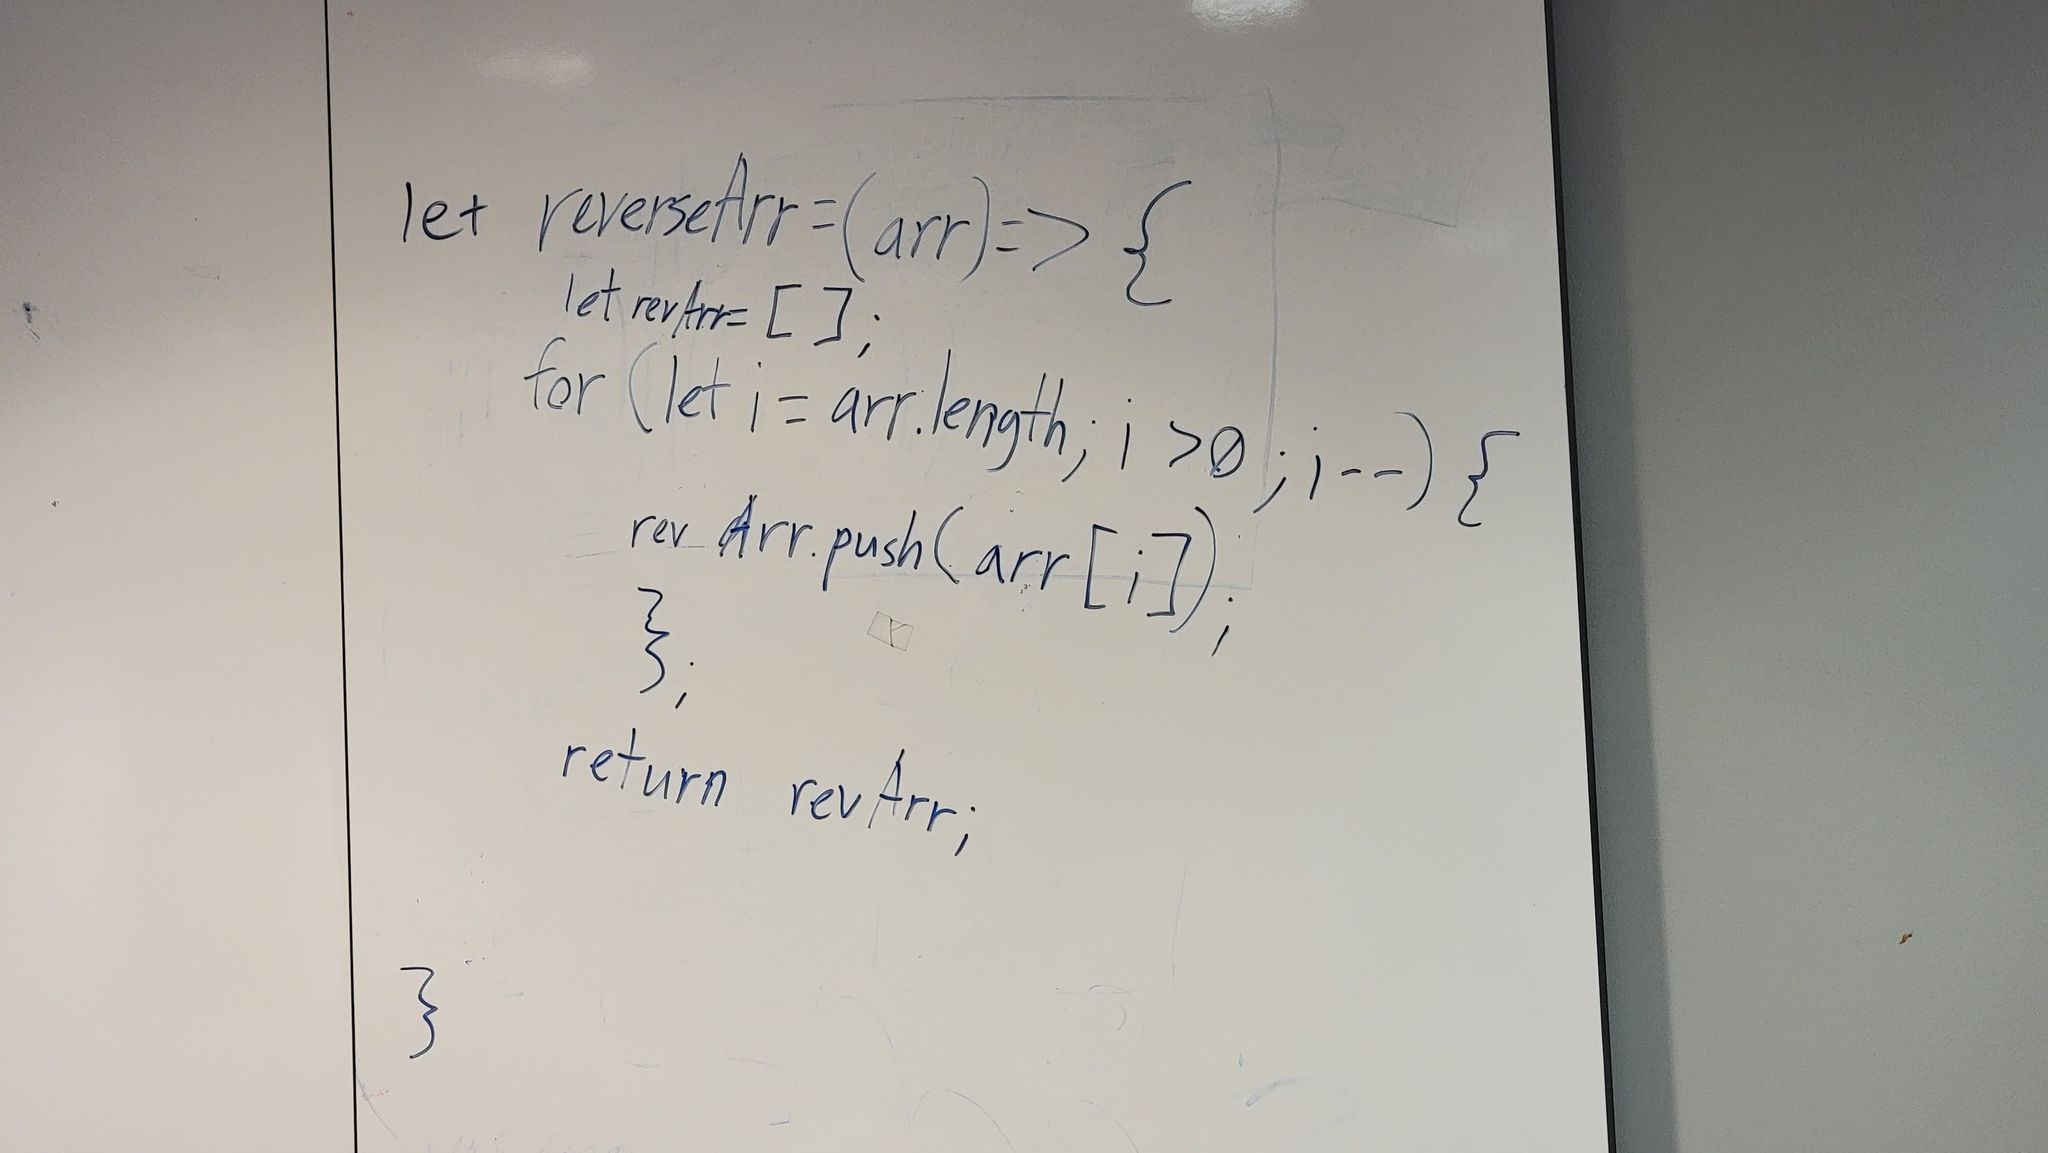 let reverseArr=(arr)=> {
let revArr= [ ];
for (let i = arr.length; i >0 ; i--) {
rev Arr.push(arr[i]);
};
return revArr;
}